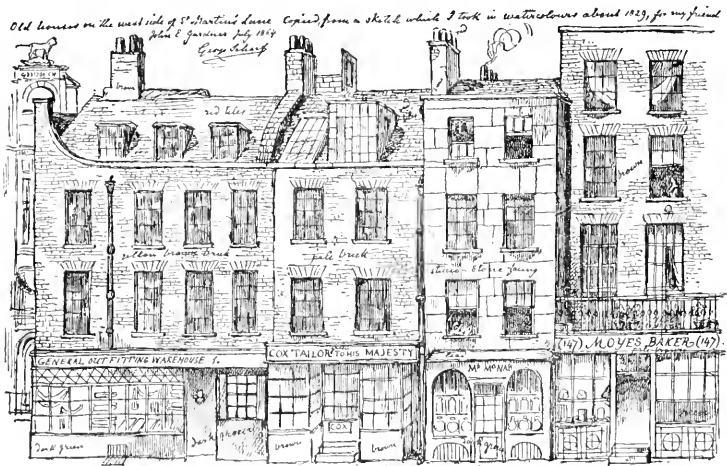 Old houses on the west side of St Martin's Lane Copied, from a sketch which I took in watercolours about 1829, for my friend
John E Gardner July 1864
George Scharf
brown
red tiles
yellow brown brick
pale brick
stucco - stone facing
brown
GENERAL OUTFITTING WAREHOUSE
COX TAILOR TO HIS MAJESTY
Mr McNAB
(147) MOYES, BAKER (147).
COX
dark green
dark green
brown
brown
dark green
green